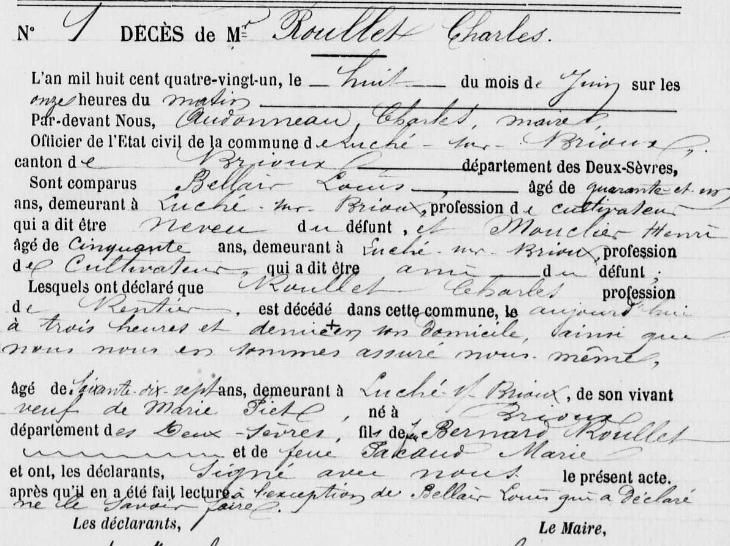 N° 1 DECÈS de Mr Roullet Charles.
L'an mil huit cent quatre-vingt-un, le huit du mois de Juin sur les
onze heures du matin
Par-devant Nous, Audonneau, Charles, maire,
Officier de l'Etat civil de la commune de Luché-sur-Brioux,
canton de Brioux département des Deux-Sèvres,
Sont comparus Bellair Louis âgé de quarante et un
ans, demeurant à Luché-sur Brioux, profession de cultivateur
qui a dit être neveu du défunt, et Mouclier Henri
âgé de Cinquante ans, demeurant à Luché-sur-Brioux, profession
de Cultivateur, qui a dit être ami du défunt ;
Lesquels ont déclaré que Roullet Charles profession
de Rentier, est décédé dans cette commune, le aujourd'hui
à trois heures et demie + en son domicile, ainsi que
nous nous en sommes assuré nous-même,
âgé de Soixante-dix-sept ans, demeurant à Luché-s/-Brioux, de son vivant
veuf de Marie Piet, né à Brioux
département des Deux-Sèvres, fils de feu Bernard Roullet
et de feue Pacaud Marie
et ont, les déclarants, Signé avec nous le présent acte.
après qu'il en a été fait lecture, à l'exception de Bellair Louis qui a Déclaré
ne le savoir faire.
Les déclarants, Le Maire,